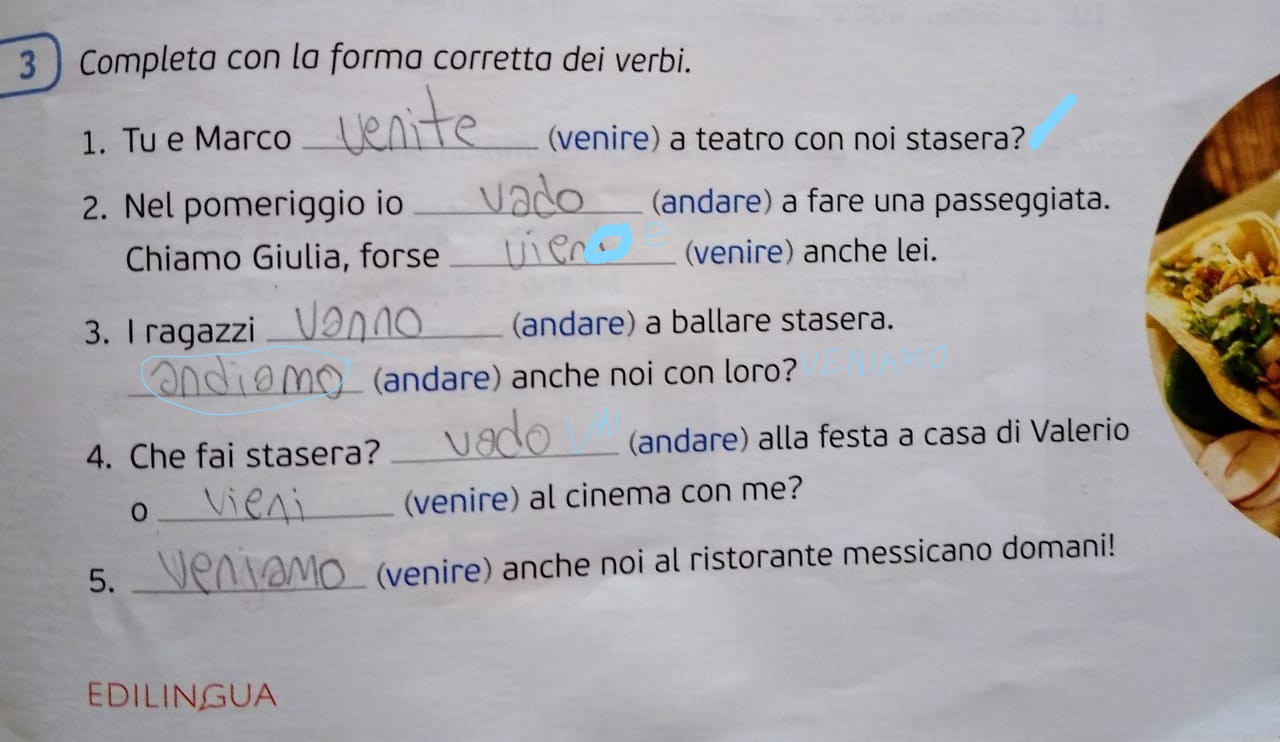 3 Completa con la forma corretta dei verbi.
1. Tu e Marco venite (venire) a teatro con noi stasera?
2. Nel pomeriggio io vado (andare) a fare una passeggiata.
Chiamo Giulia, forse vieno e (venire) anche lei.
3. I ragazzi vanno (andare) a ballare stasera.
andiamo (andare) anche noi con loro? VENIAMO
4. Che fai stasera? vado VAI (andare) alla festa a casa di Valerio
o vieni (venire) al cinema con me?
5. veniamo (venire) anche noi al ristorante messicano domani!
EDILINGUA